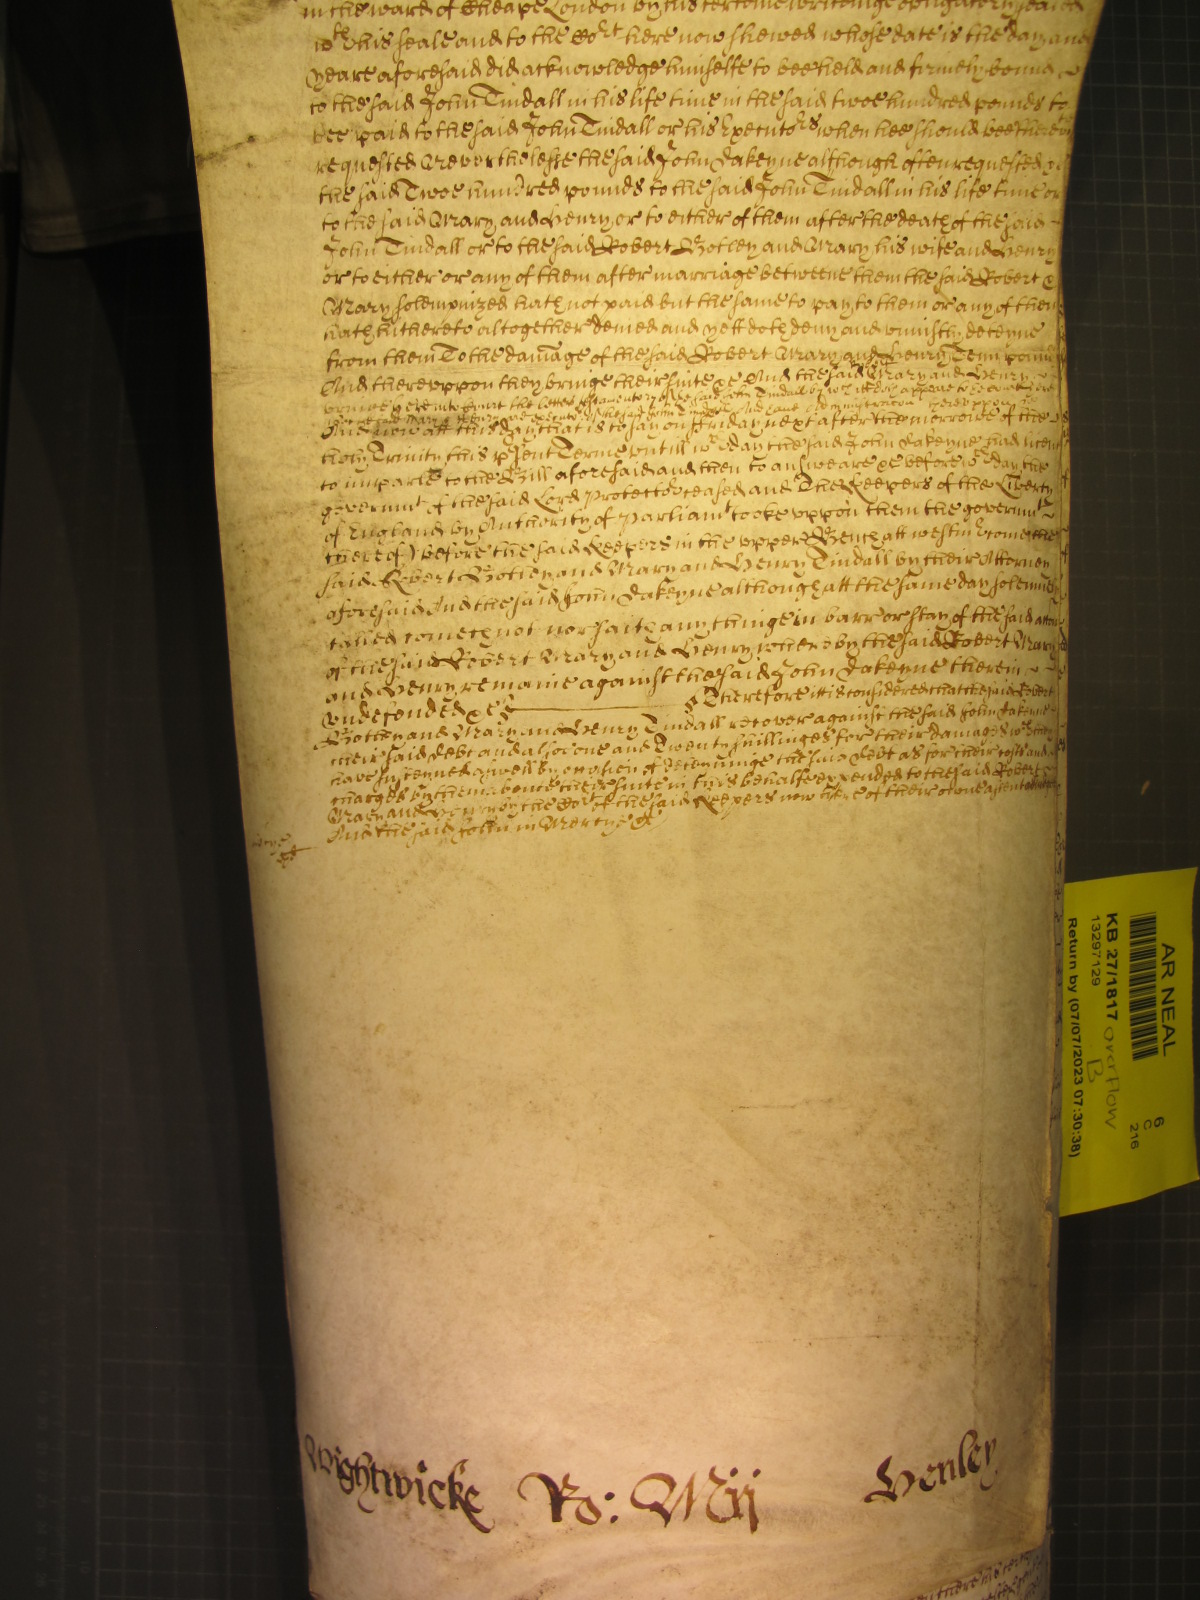 in the ward of Cheape London by his certeine writeinge obligatory sealed
wth his seale and to the Cort here now shewed whose date is the day and
yeare aforesaid did acknowledge himselfe to bee held and firmely bound
to the said John Tindall in his life time in the said twoe hundred pounds to
bee paid to the said John Tindall or his Executors when hee should bee thereto
requested Neverthelesse the said John Dakeyne although often requested
the said Twoe hundred pounds to the said John Tindall in his life time or
to the said Mary and Henry or to either of them after the death of the said
John Tindall or to the said Robert Botley and Mary his wife and Henry
or to either or any of them after marriage betweene them the said Robert &
Mary solempnized hath not paid but the same to pay to them or any of them
hath hithereto altogether denied and yett doth deny and uniustly deteyne
from them To the damage of the said Robert Mary and Henry Tenn pounds
And thereuppon they bringe their suite &c And the said Mary and Henry
bringe here into Court the letters testamentory of the said John Tindall by wch itt doth appeare to the Court here
And now att this day that is to say on Friday next after the morrowe of the
holy Trinity this psent Terme untill wch day the said John Dakeyne had licence
to imparle to the Bill aforesaid and then to answeare &c before wch day the
governmt of the said Lord Protector ceased and The Keepers of the Liberty
of England by Authority of Parliamt tooke uppon them the governmt
thereof) before the said Keepers in the upper Bench att Westmr come the
said Robert Botley and Mary and Henry Tindall by their Attorney
aforesaid And the said John Dakeyne although att the same day solemnely
called cometh not nor saith any thinge in barr or stay of the said accon
of the said Robert Mary and Henry whereby the said Robert Mary
and Henry remaine against the said John Dakeyne therein
undefended &c Therefore itt is considered that the said Robert
Botley and Mary and Henry Tindall recover against the said John Dakeyne
their said debt and also one and Twenty shillinges for their damages wch they
have susteyned aswell by occasion of deteyninge the said debt as for their costs and
charges by them about their suite in this behalfe expended to the said Robert
Mary and Henry by the Cort of the said Keepers now here of their owne assent
And the said John in Mercy &c
Wightwicke Ro: Mij Henley
AR NEAL
KB 27/1817 overflow
B
13297129
Return by (07/07/2023 07:30:38)
6
C
216